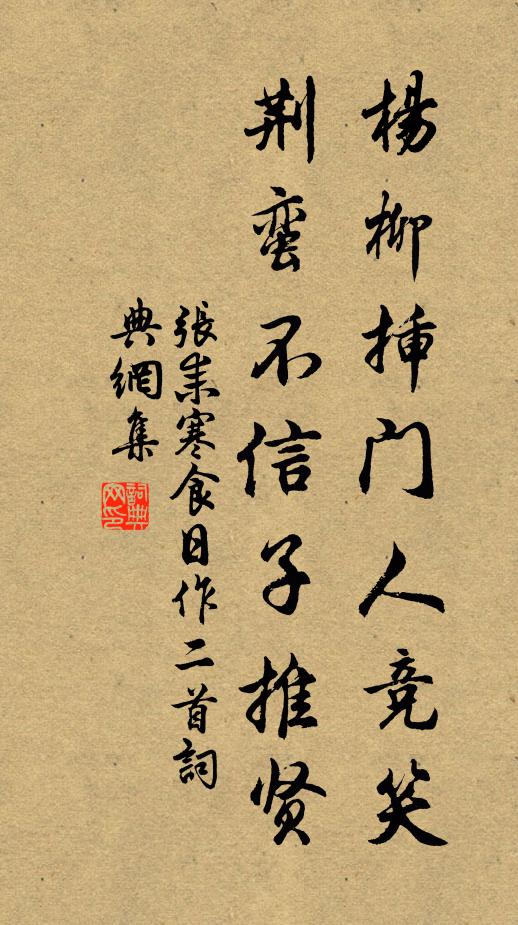 楊柳揷门人竞笑
荆蛮不信子推贤
張耒寒食日作二首詞
典網集
詞典网印